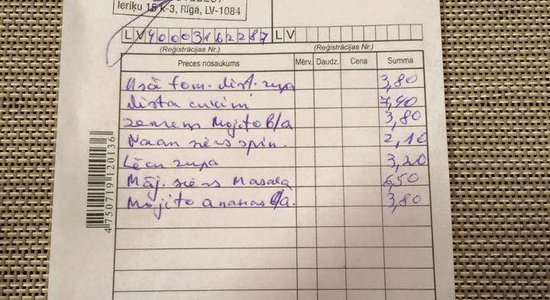 Ieriķu 15 K-3, Rīga, LV-1084
LV40003162287 LV
(Reģistrācijas Nr.) (Reģistrācijas Nr.)
Preces nosaukums Mērv. Daudz. Cena Summa
Asā tom. zupa 3,80
cukini 7,40
zemeņu Mojito B/a 3,80
Naan siers spin. 2,10
Lēcu zupa 3,20
Māj. siers Masala 6,50
Mojito ananas B/a. 3,80
4750719120136